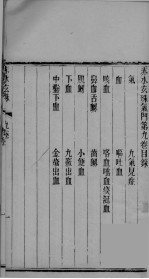 赤水玄珠氣門第九卷目錄
氣　九氣見症
血　嘔吐血
咳血　咯血咳血痰涎血
舌衄　齒衄
肌衄　小便血
下血　九竅出血
中蠱下血　金瘡出血